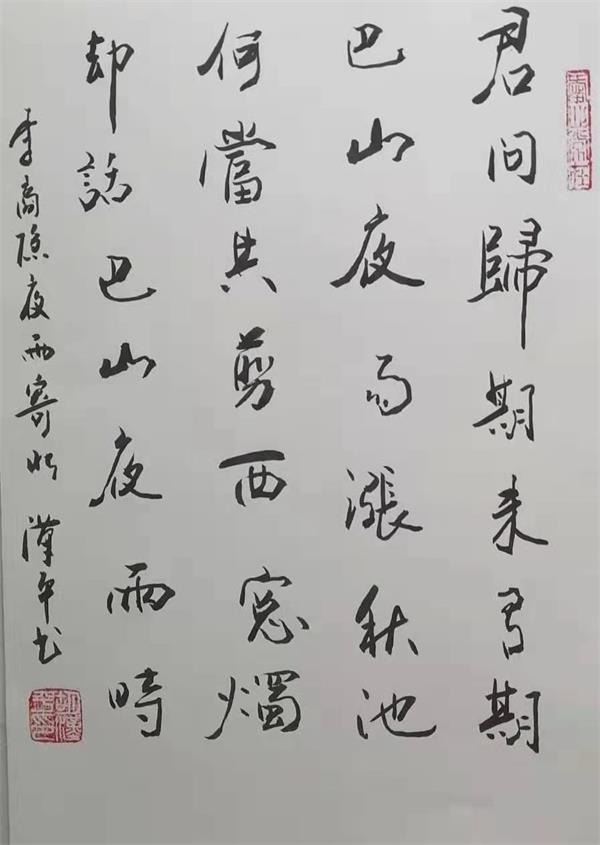 君问歸期未有期
巴山夜雨漲秋池
何當共剪西窓燭
却話巴山夜雨時
李商隐夜雨寄北 漢平书